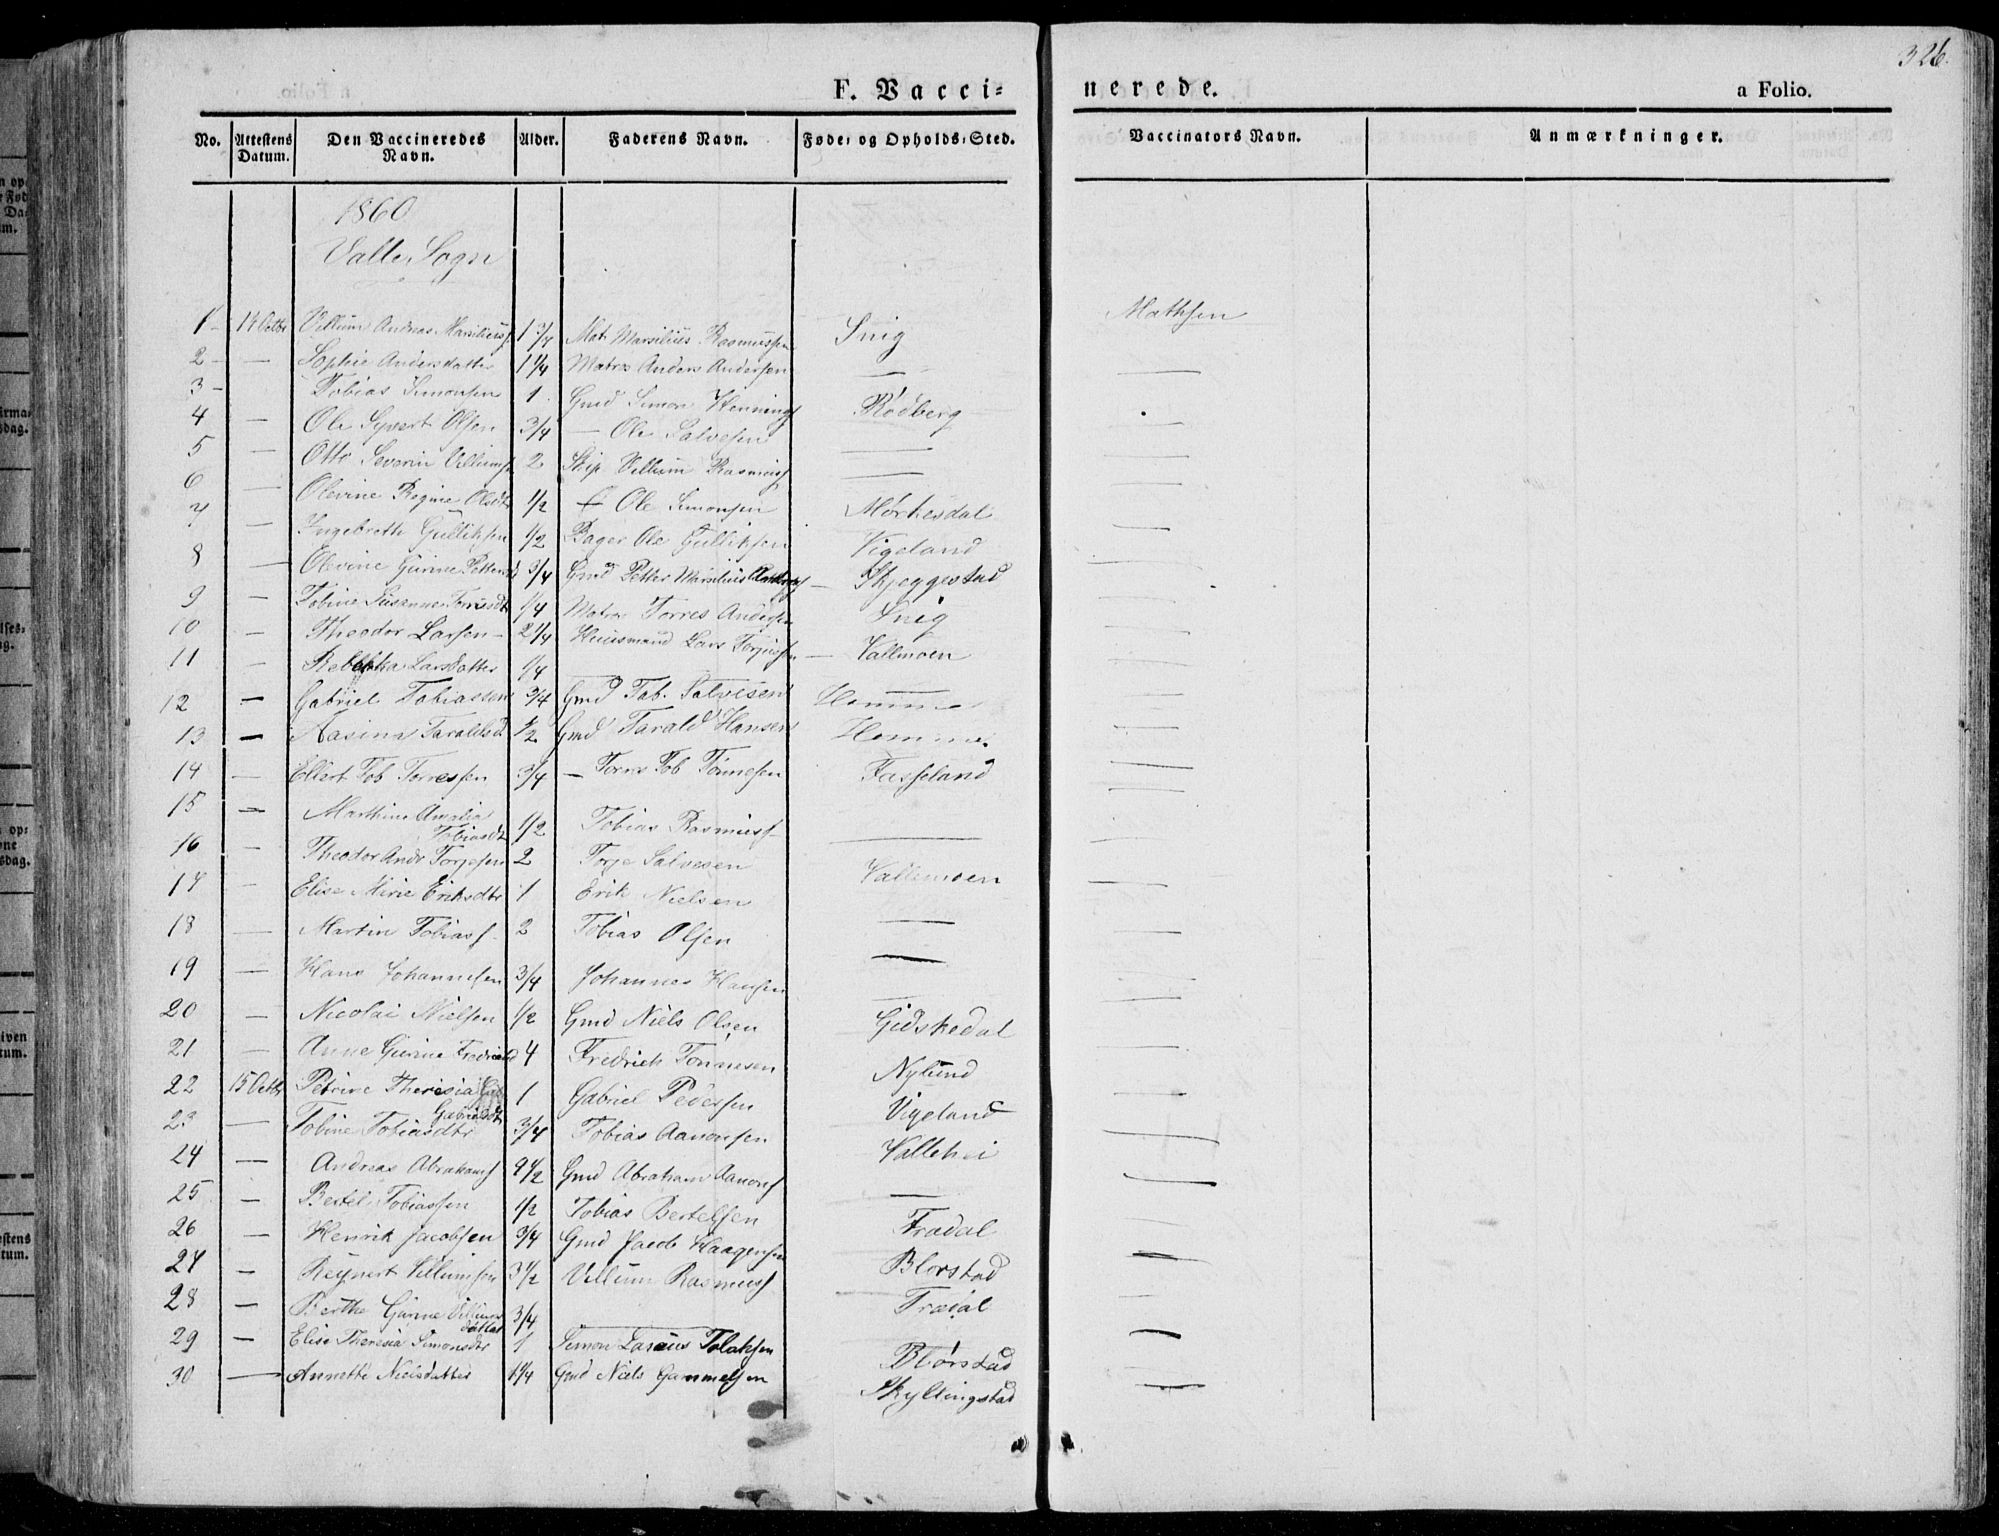 326.
F. Vacci= nerede. a Folio.
No. Attestens Datum. Den Vaccineredes Navn. Alder. Faderens Navn. Føde= og Opholds=Sted. Vaccinators Navn. Anmærkninger.
1860
Valle Sogn
1 - 14 Octbr Villum Andreas Marsiliusf 1 3/4 Mat Marsilius Rasmussen Snig Mathsen
2 - — Sophie Andersdatter 1 1/4 Matros Anders Andersen — —
3 - Tobias Simonsen 1. Gmd Simon Hennings Rødberg
4 — Ole Syvert Olsen 3/4 — Ole Salvesen — —
5 — Otto Severin Villumsf 2 Skip Villum Rasmusf — —
6 — Olevine Regine Olsdtr 1/2 Ole Simonsen Mørkesdal —
7 — Ingebreth Gulliksen 1/2 Bager Ole Gulliksen Vigeland —
8 — Olevine Gurine Pettersd 3/4 Gmd Petter Marsilius Skjeggestad —
9 — Tobine Susanne Torresdtr 1/4 Matros Torres Andersen Snig —
10 — Theodor Larsen - 2 1/4 Huusmand Lars Torjussen Vallmoen —
11 — Rebekka Larsdatter 1/4 — —
12 — Gabriel Tobiassen 3/4 Gmd Tob. Salvesen Homme —
13 — Aasine Taraldsd 1/2 Gmd Tarald Hansen Homme. —
14 — Ellert Tob Torresen 3/4 — Torres Tob Tønnesen Fasseland —
15 — Marthine Amalia Tobiasdt 1/2 Tobias Rasmusf — —
16 — Theodor Andr Torjesen 2 Torje Salvesen Vallemoen —
17 — Elise Mirie Eriksdtr 1 Erik Nielsen —
18 — Martin Tobiasf 2 Tobias Olsen — —
19 — Hans Johannesen 3/4 Johannes Hansen — —
20 — Nicolai Nielsen 1/2 Gmd Niels Olsen Gidskedal —
21 — Anne Gurine Fredriksd 4 Fredrich Tønnesen Nylund —
22 15 Octbr Petrine Theresia Gabrielsdtr 1 Gabriel Pedersen Vigeland —
23 — Tobine Tobiasdtr 3/4 Tobias Aanonsen Vallehei —
24 — Andreas Abrahamsf 9 1/2 Gmd Abraham Aanonsf — —
25 — Bertel Tobiassen 1/2 Tobias Bertelsen Frødal —
26 — Henrik Jacobsen 3/4 Gmd Jacob Haagensen Blørstad —
27 — Reinert Villumsen 3 1/2 Villum Rasmusf Trædal —
28 — Berthe Gurine Villums datter 3/4 — —
29 — Elise Theresia Simonsdtr 1 Simon Zarius Tolaksen Blørstad —
30 — Annette Nielsdatter 1 1/4 Gmd Niels Gammelsen Skyllingstad —